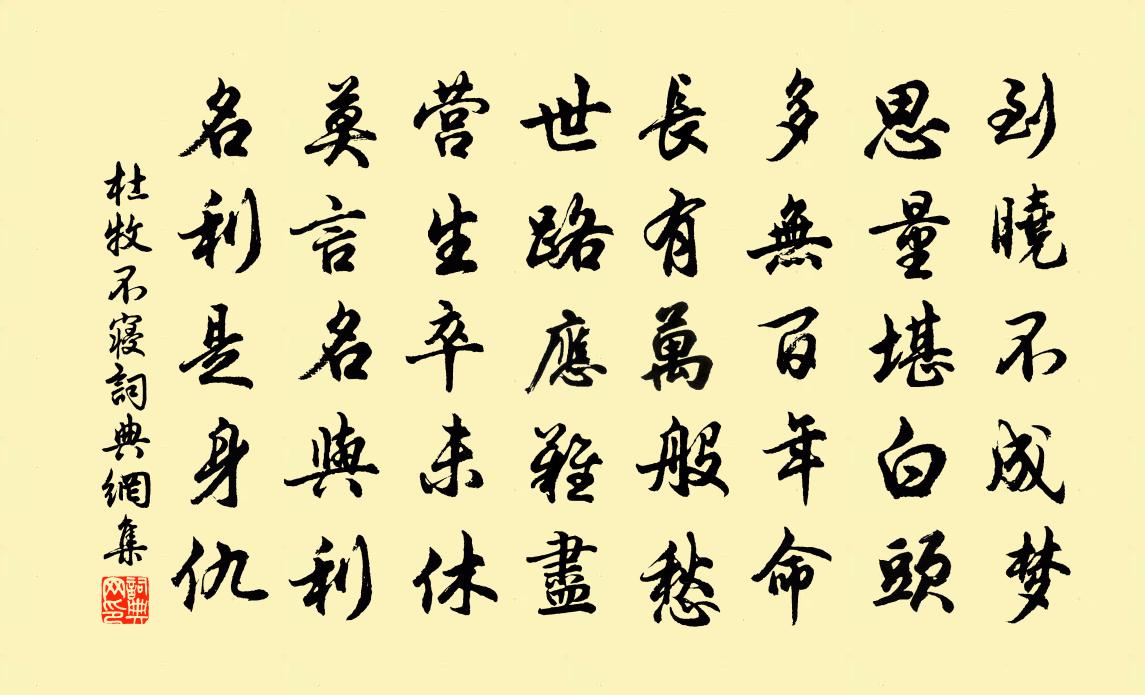 到曉不成梦
思量堪白頭
多無百年命
長有萬般愁
世路應難盡
营生卒未休
莫言名與利
名利是身仇
杜牧不寢詞典網集
詞典
网印